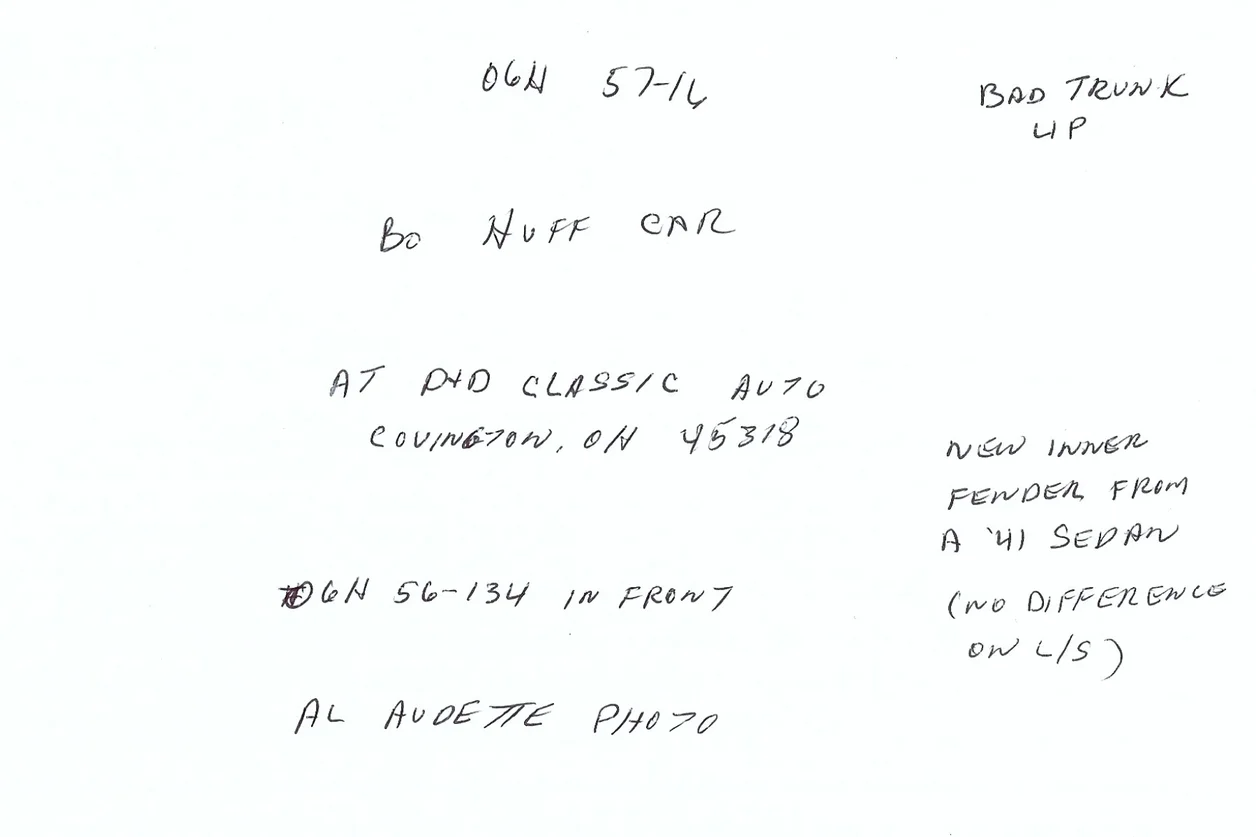 06H 57-16
BAD TRUNK
UP
BO HUFF CAR
AT D+D CLASSIC AUTO
COVINGTON, OH 45318
NEW INNER
FENDER FROM
A '41 SEDAN
06H 56-134 IN FRONT
(NO DIFFERENCE
ON L/S)
AL AUDETTE PHOTO